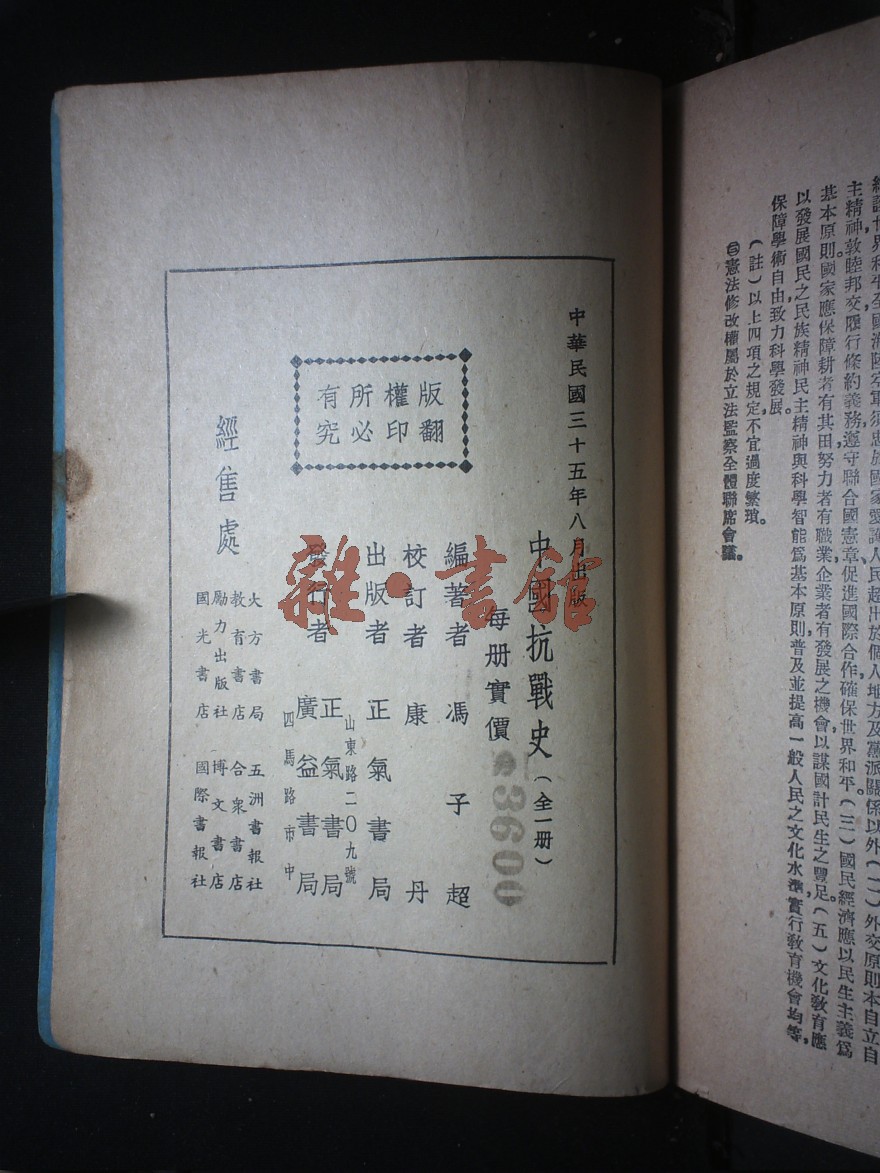 主精神敦睦邦交履行條約義務遵守聯合國憲章促進國際合作確保世界和平。(三)國民經濟應以民生主義爲
基本原則國家應保障耕者有其田努力者有職業企業者有發展之機會以謀國計民生之豐足。(五)文化敎育應
以發展國民之民族精神民主精神與科學智能爲基本原則普及並提高一般人民之文化水準實行敎育機會均等,
保障學術自由致力科學發展。
(註)以上四項之規定不宜過度繁瑣。
㊂憲法修改權屬於立法監察全體聯席會議。
中華民國三十五年八月出版
中國抗戰史(全一册)
每册實價
3600
編著者 馮子超
校訂者 康丹
出版者 正氣書局
山東路二〇九號
發行者 正氣書局
廣益書局
四馬路市中
版權所有
翻印必究
經售處
大方書局 五洲書報社
教育書店 合衆書店
勵力出版社 博文書店
國光書店 國際書報社
雜·書館